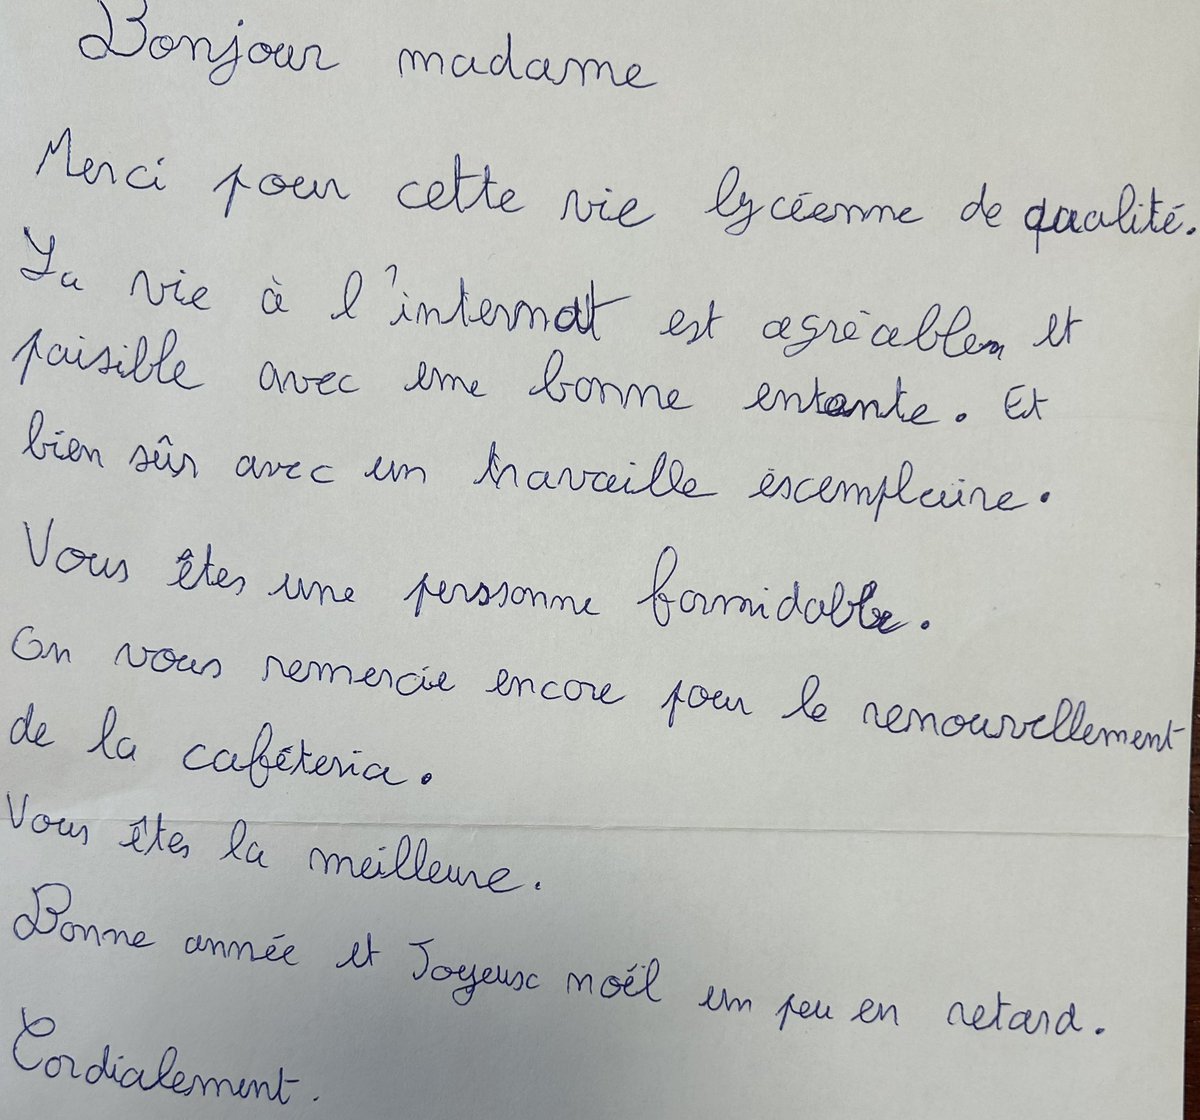 Bonjour madame
Merci pour cette vie lycéenne de qualité.
La vie à l'internat est agréable et
paisible avec une bonne entante. Et
bien sûr avec un travaille éxemplaire.
Vous êtes une perssonne formidable.
On vous remercie encore pour le renouvellement
de la caféteria.
Vous êtes la meilleure.
Bonne année et Joyeux noël un peu en retard.
Cordialement.